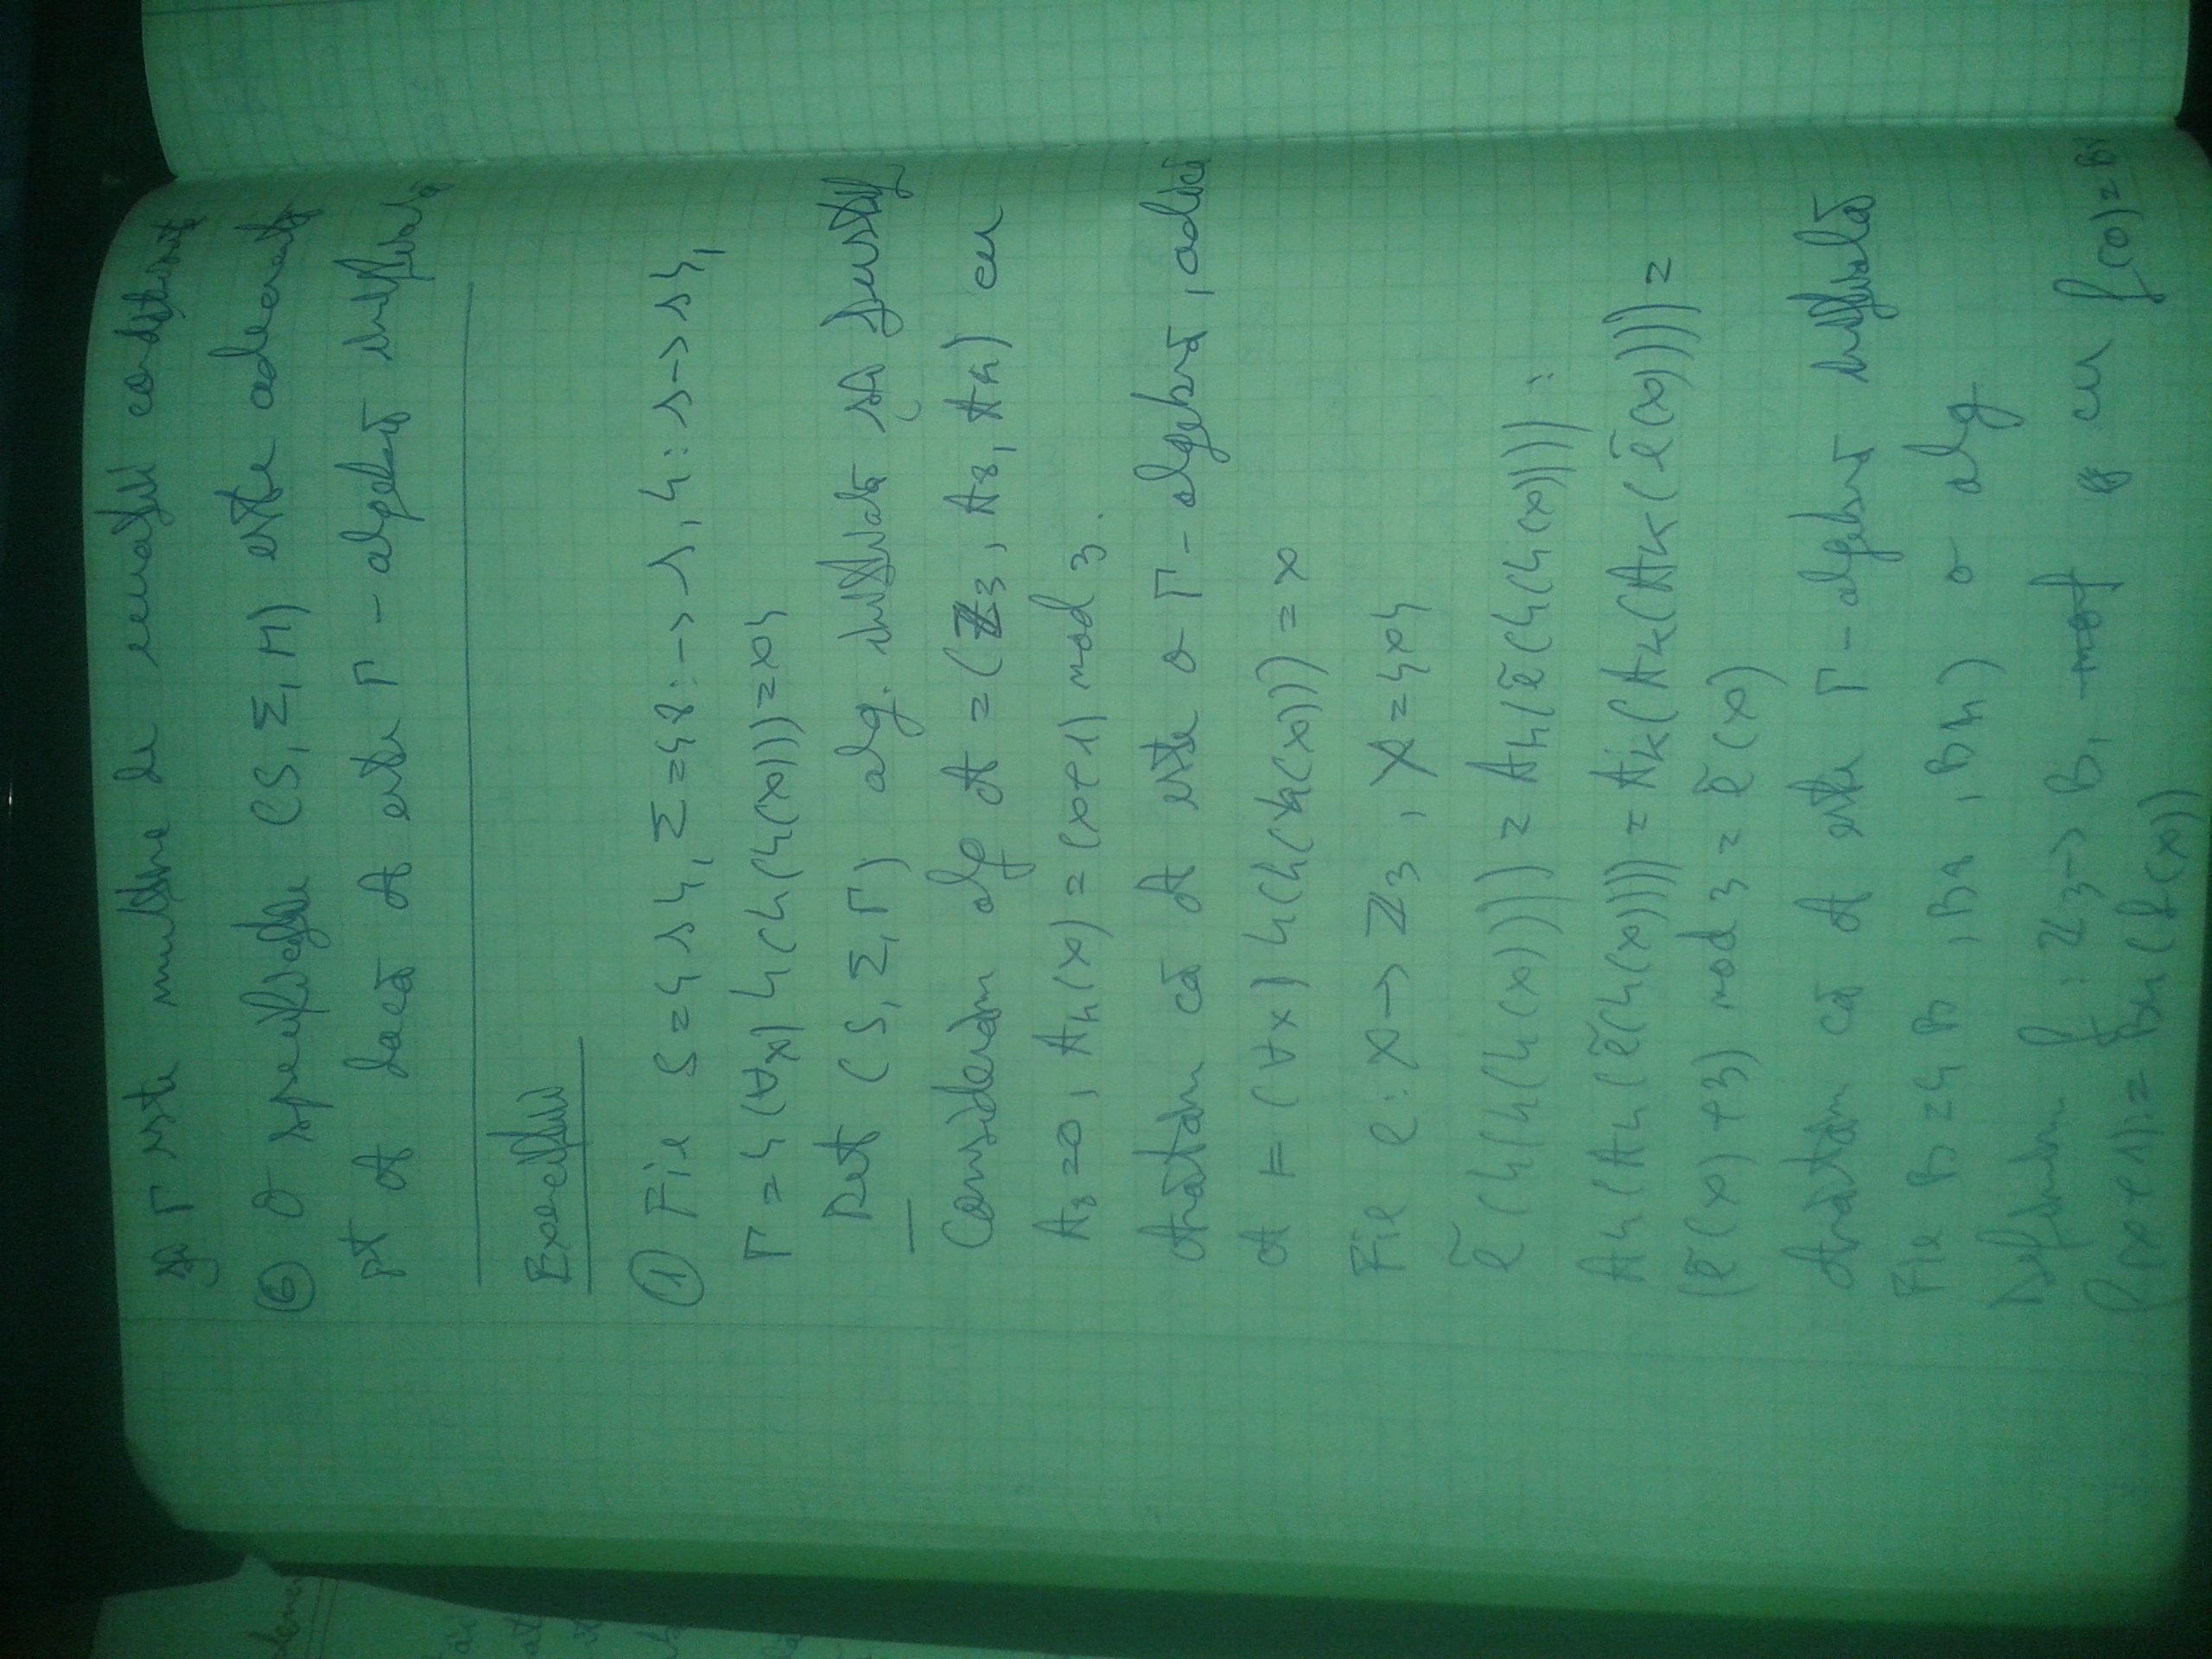 și Γ este mulțime de ecuații condiționate
⑥ O specificație (S, Σ, Γ) este adecvată
pt A dacă A este Γ - algebră inițială
Exerciții
① Fie S={s}, Σ={γ: → s, h: s→s},
Γ={(∀x) h(h(h(x)))=x}
Det (S, Σ, Γ) alg. inițială și justif
Considerăm alg A = (Z₃, Aγ, Ah) cu
Aγ=0, Ah(x) = (x+1) mod 3.
Arătăm că A este o Γ - algebră, adică
A ⊨ (∀x) h(h(h(x))) = x
Fie e: X → Z₃, X={x}
ẽ(h(h(h(x)))) = Ah(ẽ(h(h(x)))) =
Ah(Ah(ẽ(h(x)))) = Ah(Ah(Ah(ẽ(x)))) =
(ẽ(x)+3) mod 3 = ẽ(x)
Arătăm că A este Γ - algebră inițială
Fie B={B, Bγ, Bh) o alg
Definim f: Z₃→B, cu f(0)=Bγ
f(x+1):= Bh(f(x))